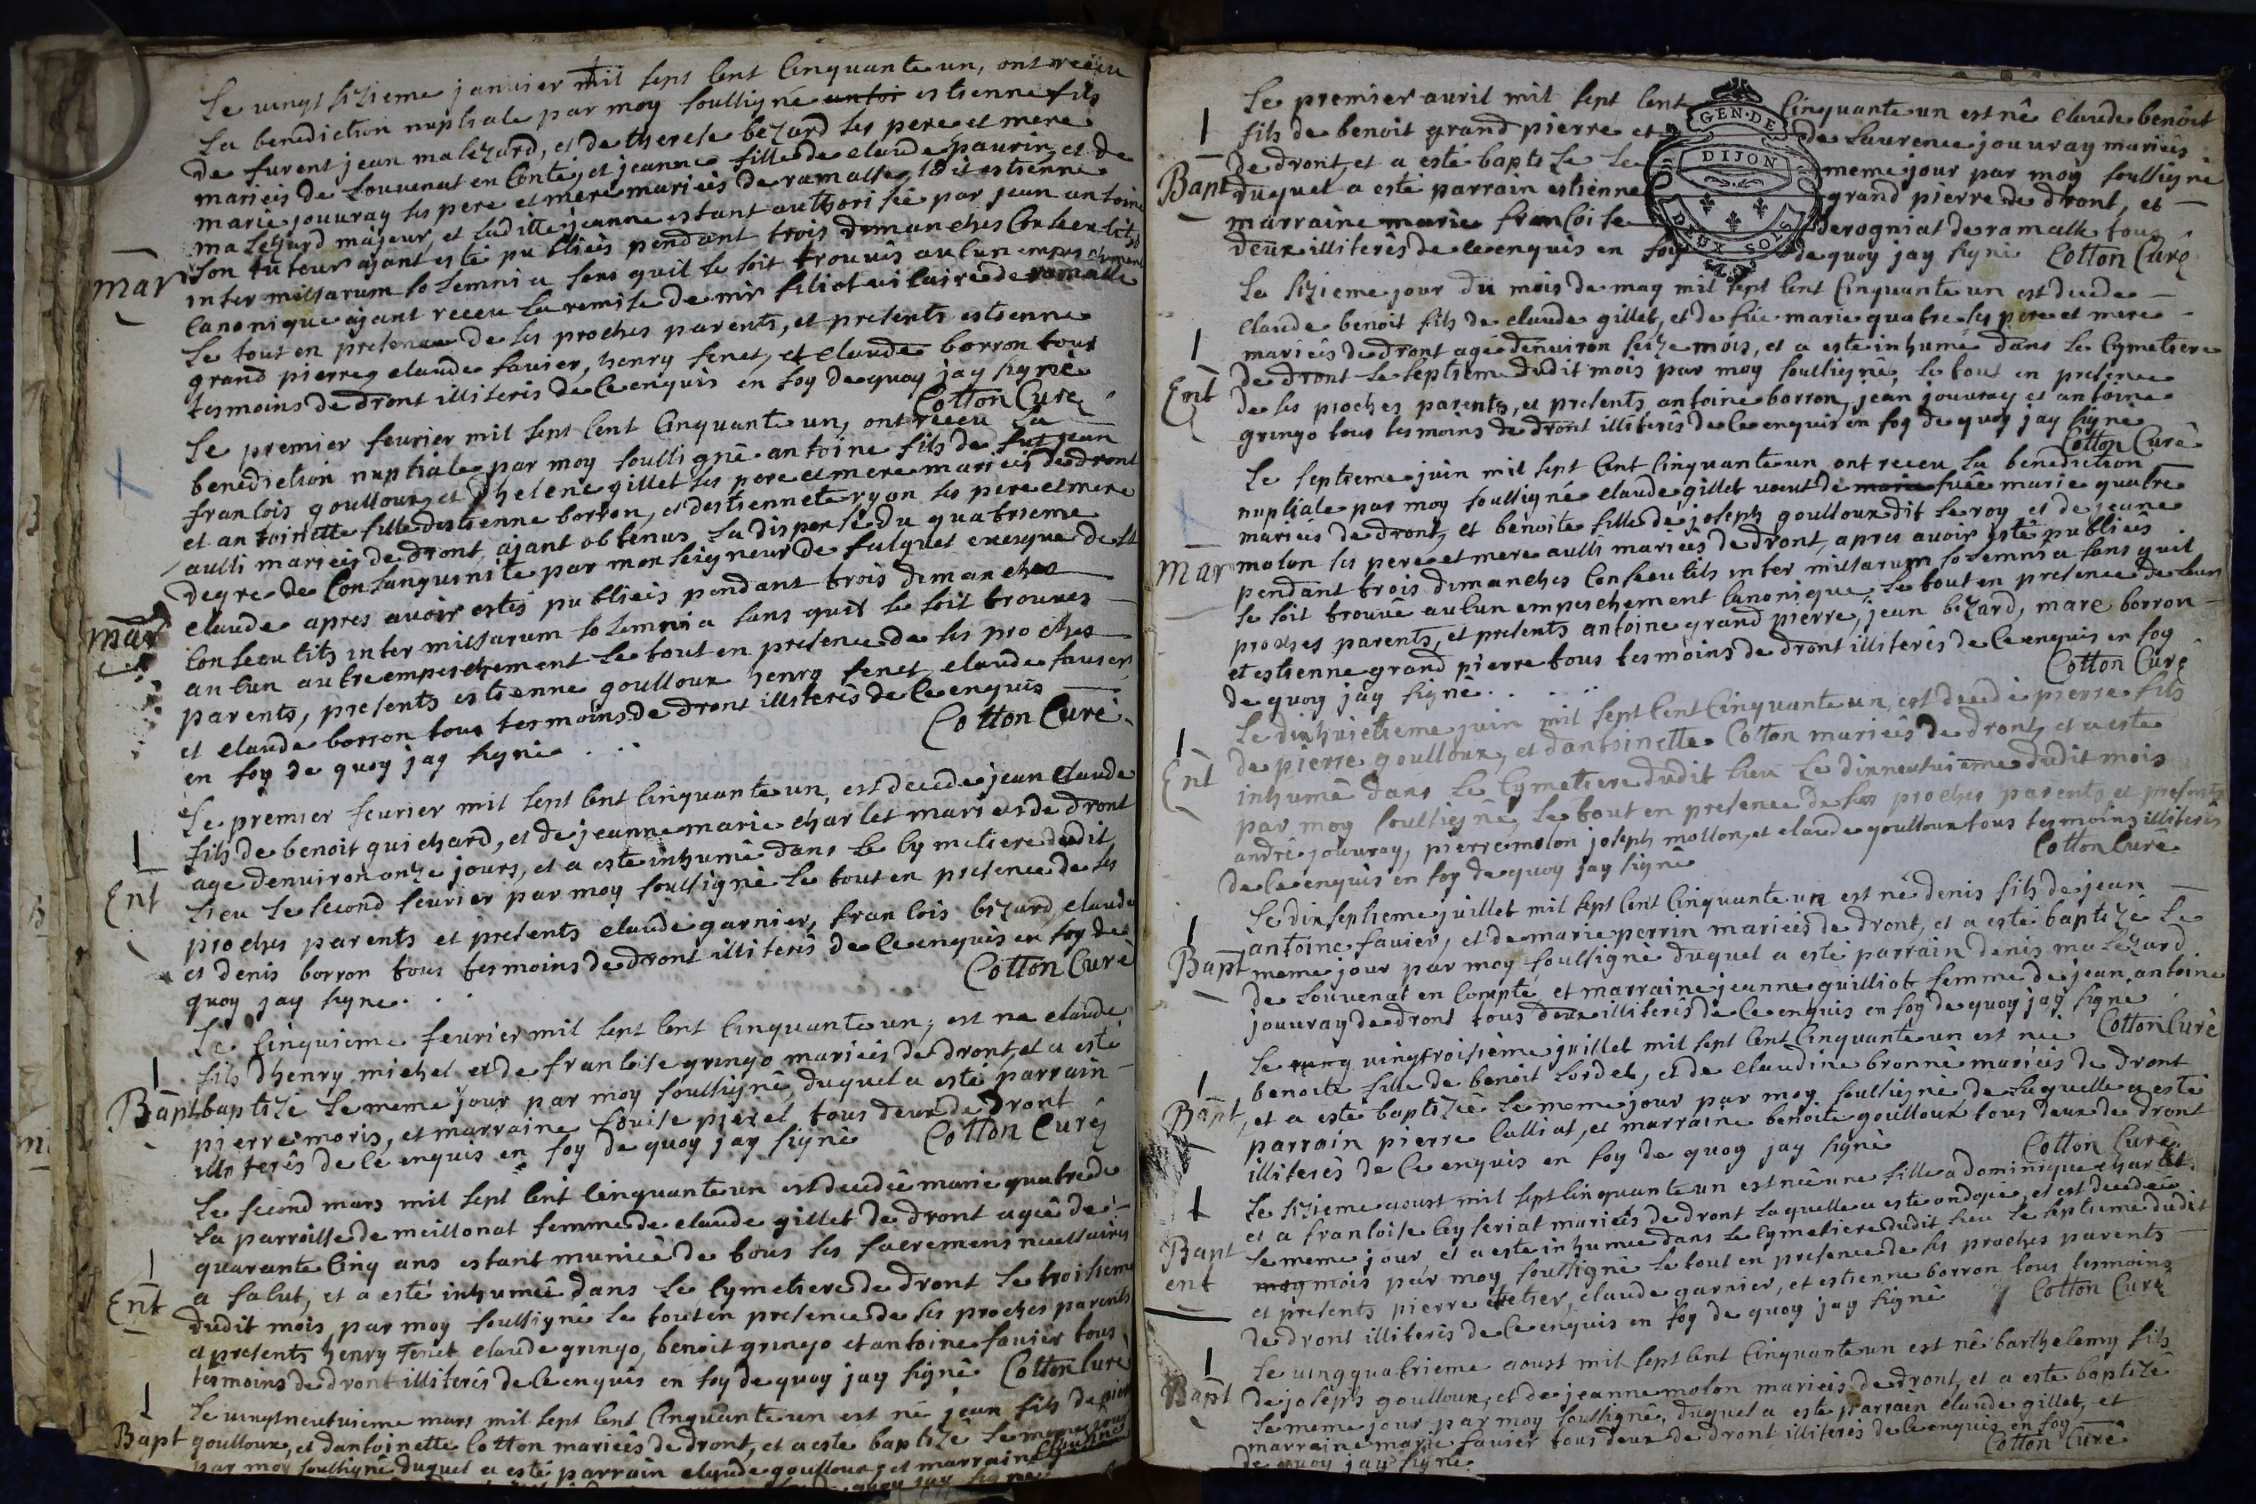 Le vingt sizieme janvier mil sept cent cinquante un, ont receu
La benediction nuptiale par moy soussigné estienne fils
de furent jean malezard, et de therese bezard ses pere et mere
mariéés de Louvenat en Conté, et jeanne fille de claude paurin, et de
marie jouuray ses pere et mere mariéés de ramasse ledit estienne
malezard majeur, et Laditte jeanne estant authorisée par jean antoine
son tuteur ajant esté publiéés pendant trois dimanches Consecutifs
mar
inter missarum solemnia sans quil se soit trouvés aucun empeschement
Canonique ajant receu La remise de mr filiot vicaire de ramasse
Le tout en presence de ses proches parents, et presents estienne
grand pierre, claude favier, henry fenet, et claude borron tous
tesmoins de dront illiterés de ce enquis en foy de quoy jay signé
Cotton Curé
Le premier fevrier mil sept cent Cinquante un, ont receu La
benediction nuptiale par moy soussigné antoine fils de fut jean
francois goulloux, et d helene gillet ses pere et mere mariéés de dront
et antoinette fille destienne borron, et destiennete ryon ses pere et mere
aussi mariéés de dront, ajant obtenus La dispense du quatrieme
degre de Consanguinité par monseigneur de fulquet evesque de st
mar
claude apres avoir estés publiéés pendant trois dimanches
Consecutifs inter missarum solemnia sans quil se soit trouves
aucun autre empeschement Le tout en presence de ses proches
parents, presents estienne goulloux henry fenet claude favier
et claude borron tous tesmoins de dront illiterés de ce enquis
en foy de quoy jay signé
Cotton Curé
Le premier fevrier mil sept cent cinquante un, est decede jean claude
fils de benoit guichard, et de jeanne marie charlet mariéés de dront
age denviron onze jours, et a esté inhumé dans Le Cymetiere dudit
Ent
Lieu Le second fevrier par moy soussigné Le tout en presence de ses
proches parents et presents claude garnier, francois bezard claude
et denis borron tous tesmoins de dront illiterés de ce enquis en foy de
quoy jay signe
Cotton Curé
Le Cinquieme fevrier mil sept cent Cinquante un, est ne claude
fils dhenry michel et de francoise gringo mariéés de dront, et a esté
Bapt
baptizé Le meme jour par moy soussigné, duquel a esté parrain
pierre moris, et marraine Louise piezet tous deux de dront
illiterés de ce enquis en foy de quoy jay signé
Cotton Curé
Le second mars mil sept cent cinquante un est decedée marie quatre de
La parroisse de meillonat femme de claude gillet de dront agée de
quarante Cinq ans estant municée de tous ses sacremens necessaires
Ent
a salut, et a esté inhumée dans Le Cymetiere de dront Le troisieme
dudit mois par moy soussigné Le tout en presence de ses proches parents
et presents henry fenet claude gringo, benoit gringo et antoine favier tous
tesmoins de dront illiterés de ce enquis en foy de quoy jay signé Cotton Curé
Le vingtneufvieme mars mil sept cent Cinquante un est né jean fils de pierre
Bapt
goulloux, et dantoinette Cotton mariéés de dront, et a esté baptizé Le meme jour
par moy soussigné duquel a esté parrain claude goulloux, et marraine
quoy jay signé
Le premier avril mil sept cent Cinquante un est né claude benôit
fils de benoit grand pierre et de Laurence jouuray mariéés
Bapt
de dront, et a esté baptizé Le meme jour par moy soussigné
duquel a esté parrain estienne grand pierre de dront, et
marraine marie francoise derogniat de ramasse tous
deux illiterés de ce enquis en foy de quoy jay signé Cotton Curé
GEN. DE
DIJON
DEUX SOLS
Le sizieme jour du mois de may mil sept cent Cinquante un est decede
claude benoit fils de claude gillet, et de füe marie quatre ses pere et mere
mariéés de dront agé denviron seize mois, et a esté inhumé dans Le Cymetiere
Ent
de dront Le septiem dudit mois par moy soussigné, Le tout en presence
de ses proches parents, et presents antoine borron, jean jouuray et antoine
gringo tous tesmoins de dront illiterés de ce enquis en foy de quoy jay signé
Cotton Curé
Le septieme juin mil sept cent Cinquante un ont receu La benediction
nuptiale par moy soussigné claude gillet veuf de marie füe marie quatre
mariéés de dront, et benoite fille de joseph goulloux dit Le roy et de jeane
Mar
molon ses pere et mere aussi mariéés de dront, apres avoir estés publiéés
pendant trois dimanches Consecutifs inter missarum solemnia sans quil
se soit trouvé aucun empeschement Canonique, Le tout en presence de leurs
proches parents, et presents antoine grand pierre, jean bezard, marc borron
et estienne grand pierre tous tesmoins de dront illiterés de ce enquis en foy
de quoy jay signé
Cotton Curé
Le dixhuictieme juin mil sept cent Cinquante un, est decedé pierre fils
de pierre goulloux, et dantoinette Cotton mariéés de dront, et a esté
Ent
inhumé dans Le Cymetiere dudit Lieu Le dixneufvieme dudit mois
par moy soussigné, Le tout en presence de ses proches parents et presents
andré jouuray, pierre molon joseph mollon, et claude goulloux tous tesmoins illiterés
de ce enquis en foy de quoy jay signé
Cotton Curé
Le dixseptieme juillet mil sept cent Cinquante un est né denis fils de jean
antoine favier, et de marie perrin mariéés de dront, et a esté baptizé Le
Bapt
meme jour par moy soussigné duquel a esté parrain denis malezard
de Louvenat en Compté, et marraine jeanne guilliot femme de jean antoine
jouuray de dront tous deux illiterés de ce enquis en foy de quoy jay signé
Cotton Curé
Le vingtroisième juillet mil sept cent Cinquante un est née
benoite fille de benoit Lordet, et de claudine bronne mariéés de dront
Bapt
, et a esté baptizée Le meme jour par moy soussigné, de Laquelle a esté
parrain pierre Culliat, et marraine benoite goulloux tous deux de dront
illiterés de ce enquis en foy de quoy jay signé
Cotton Curé
Le sizieme aoust mil sept cinquante un est née une fille a dominique charlet
et a francoise Ceyseriat mariéés de dront Laquelle a este ondoiée, et est decedée
Bapt
ent
Le meme jour et a esté inhumee dans Le Cymetiere dudit Lieu Le septieme dudit
moy mois par moy soussigné Le tout en presence de ses proches parents
et presents pierre tetier, claude garnier, et estienne borron tous tesmoins
de dront illiterés de ce enquis en foy de quoy jay signé
Cotton Curé
Le vingquatrieme aoust mil sept cent Cinquante un est né barthelemy fils
Bapt
de joseph goulloux, et de jeanne molon mariéés de dront, et a esté baptizé
Le meme jour par moy soussigné, duquel a esté parrain claude gillet, et
marraine marie favier tous deux de dront illiterés de ce enquis en foy
de quoy jay signé
Cotton Curé